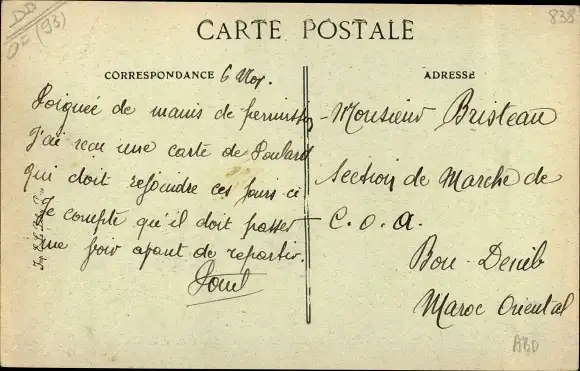 CARTE POSTALE
838
DD
(93)
CORRESPONDANCE
6 Nov.
Poignée de mains de permission
J'ai reçu une carte de Poulard
qui doit rejoindre ces jours-ci
Je compte qu'il doit passer
me voir avant de repartir.
ADRESSE
Monsieur Bristeau
Section de Marche de
C.O.A.
Bou-Denib
Maroc Oriental